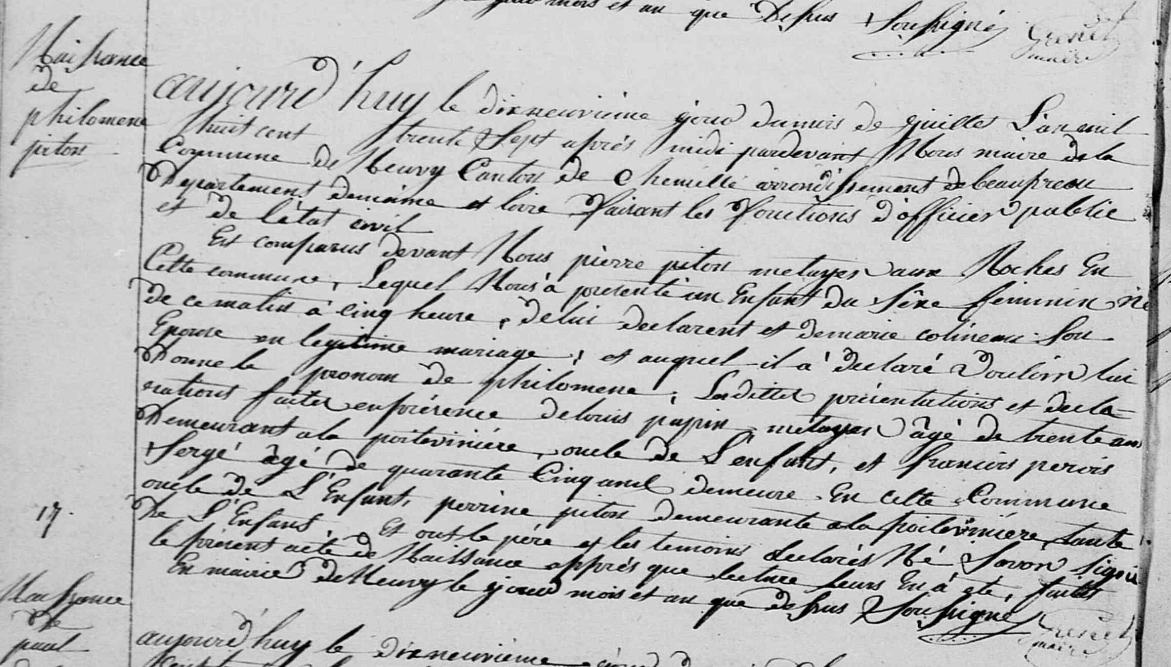 jour mois et an que Desus Soussigné Grenet
maire
Naissance
de
philomene
piton
aujourd'huy le dixneuvième jour du mois de juillet L'an mil
huit cent trente Sept après midi pardevant Nous maire de la
Commune de Neuvy Canton de Chemillé arrondissement de beaupreau
Departement demaine et loire faisant les fonctions d'officier public
et de l'état civil
Est comparus devant Nous pierre piton metayer aux Roches En
Cette commune, Lequel Nous à présenté un Enfant du Séxe féminin né
de ce matin à cinq heure, de lui declarent et de marie colineau Son
Epouse en legitime mariage, et auquel il à déclaré Vouloir lui
Donne le pronom de philomene, Lesdittes présentations et decla-
rations faites en présence de louis papin metayer âgé de trente ans
Demeurant a la poitevinière, oncle de L'enfant, et francois
Sergé âgé de quarante Cinq ans demeure En cette Commune
oncle de L'Enfant, perrine piton demeurante a la poitevinière, tante
De L'Enfant. Et ont le père et les temoins declarés Né Savoir Signé
le présent acte de Naissance apprés que lecture leurs En à été, faites
En mairie de Neuvy le jour mois et an que desus Soussigné Grenet
maire
17.
Naissance
De
paul
aujourd'huy le dixneuvième jour